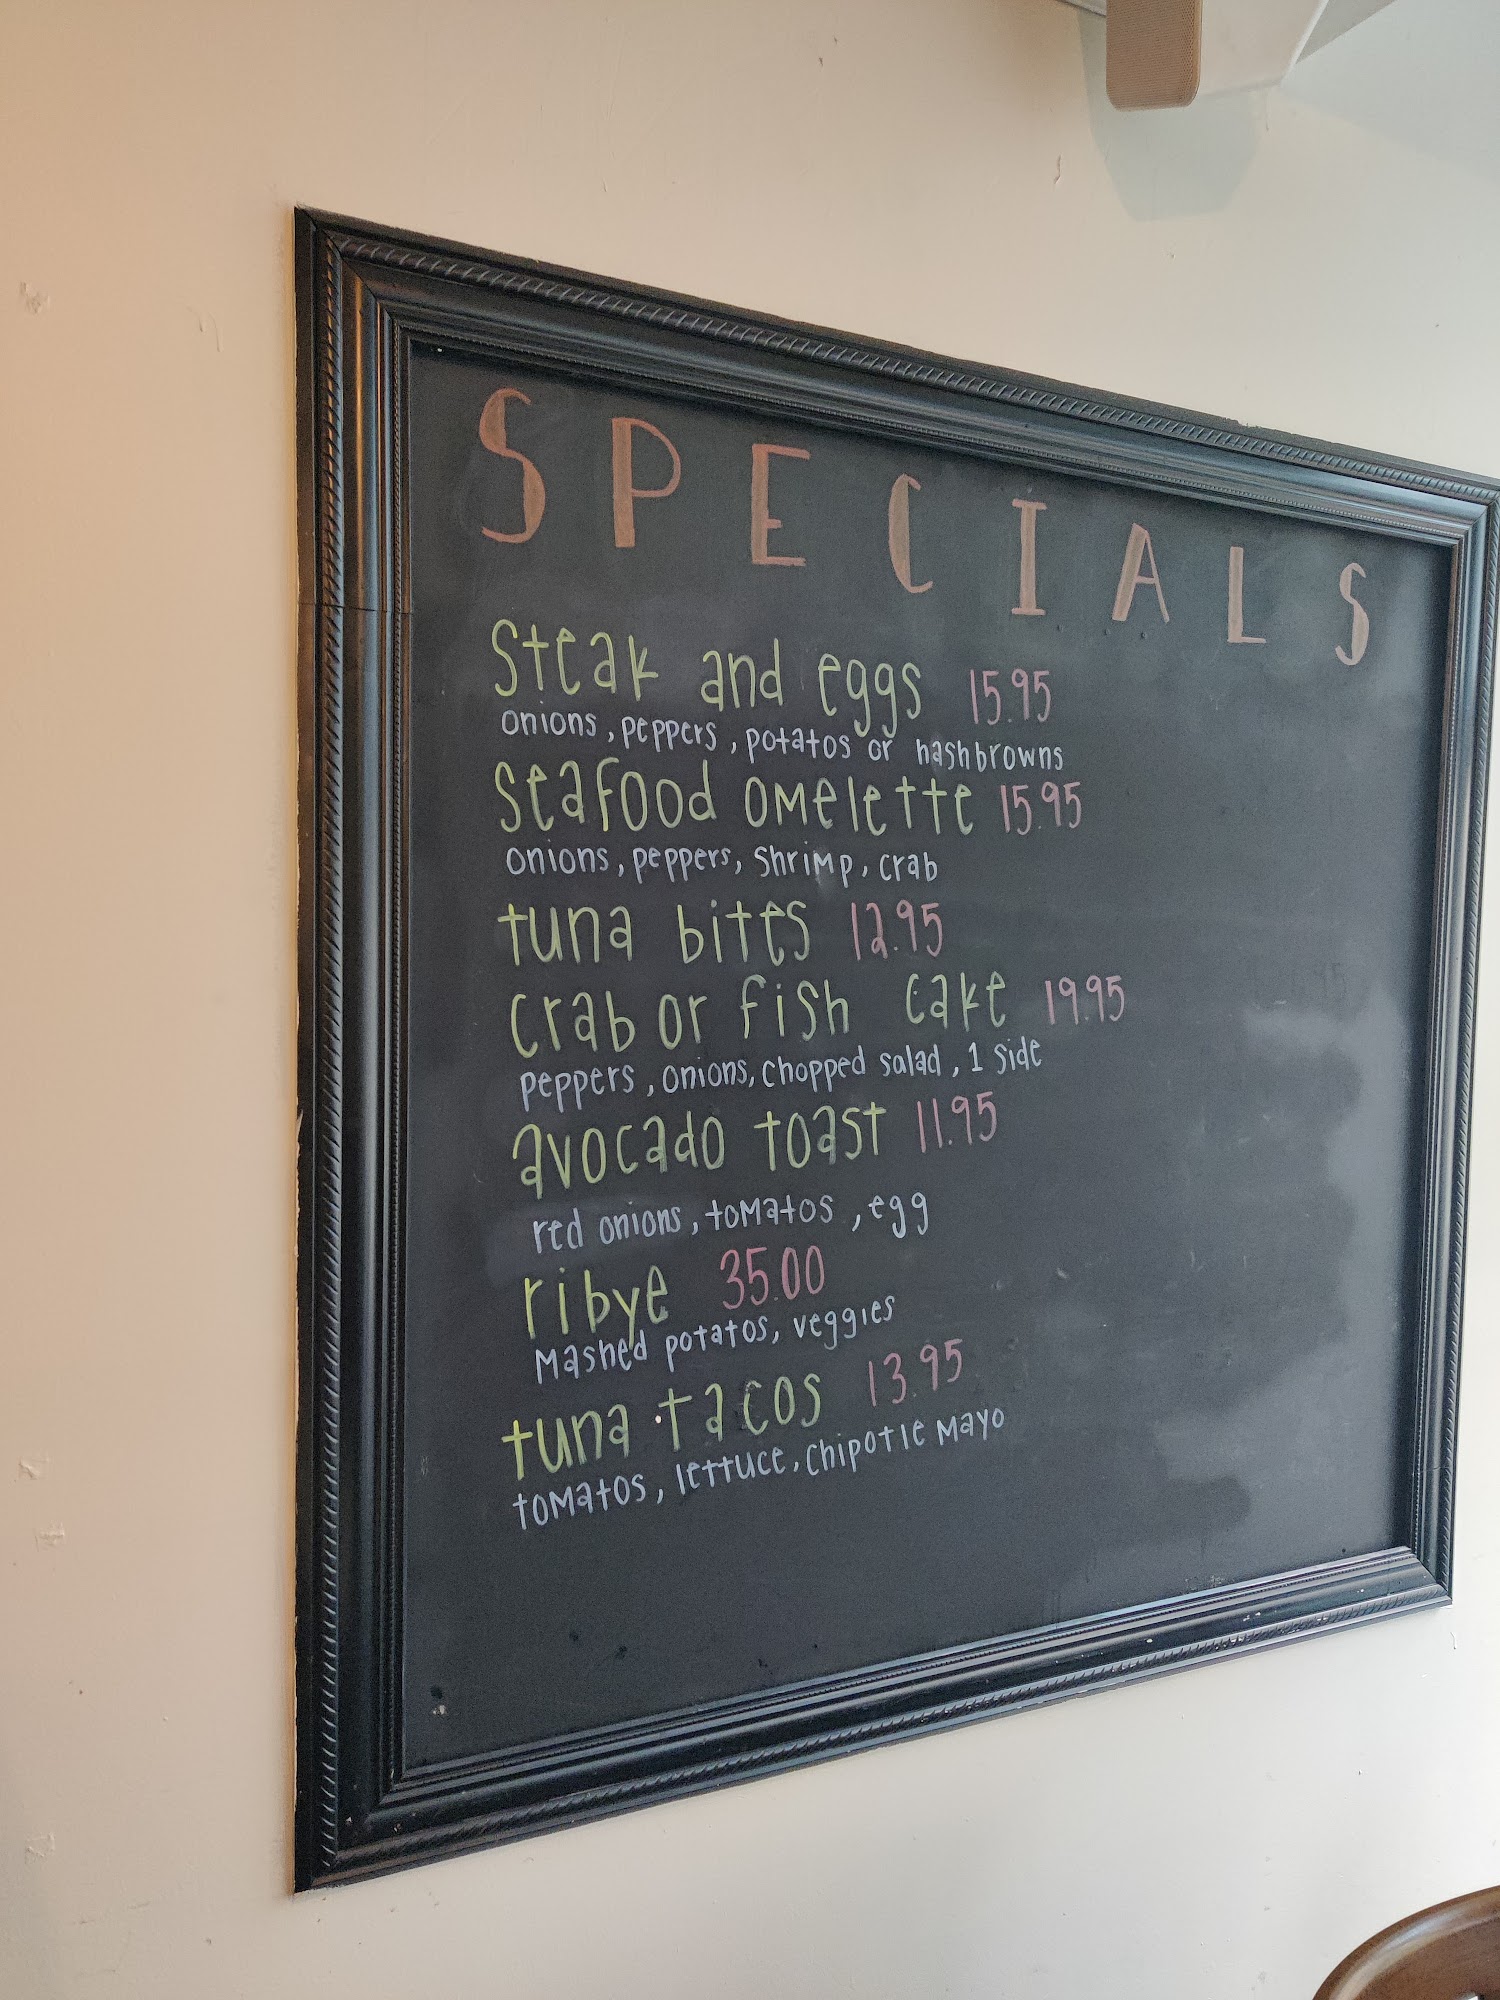 SPECIALS
Steak and eggs 15.95
onions, peppers, potatos or hashbrowns
seafood omelette 15.95
onions, peppers, shrimp, crab
tuna bites 12.95
crab or fish cake 19.95
peppers, onions, chopped salad, 1 side
avocado toast 11.95
red onions, tomatos, egg
ribye 35.00
mashed potatos, veggies
tuna tacos 13.95
tomatos, lettuce, chipotle mayo